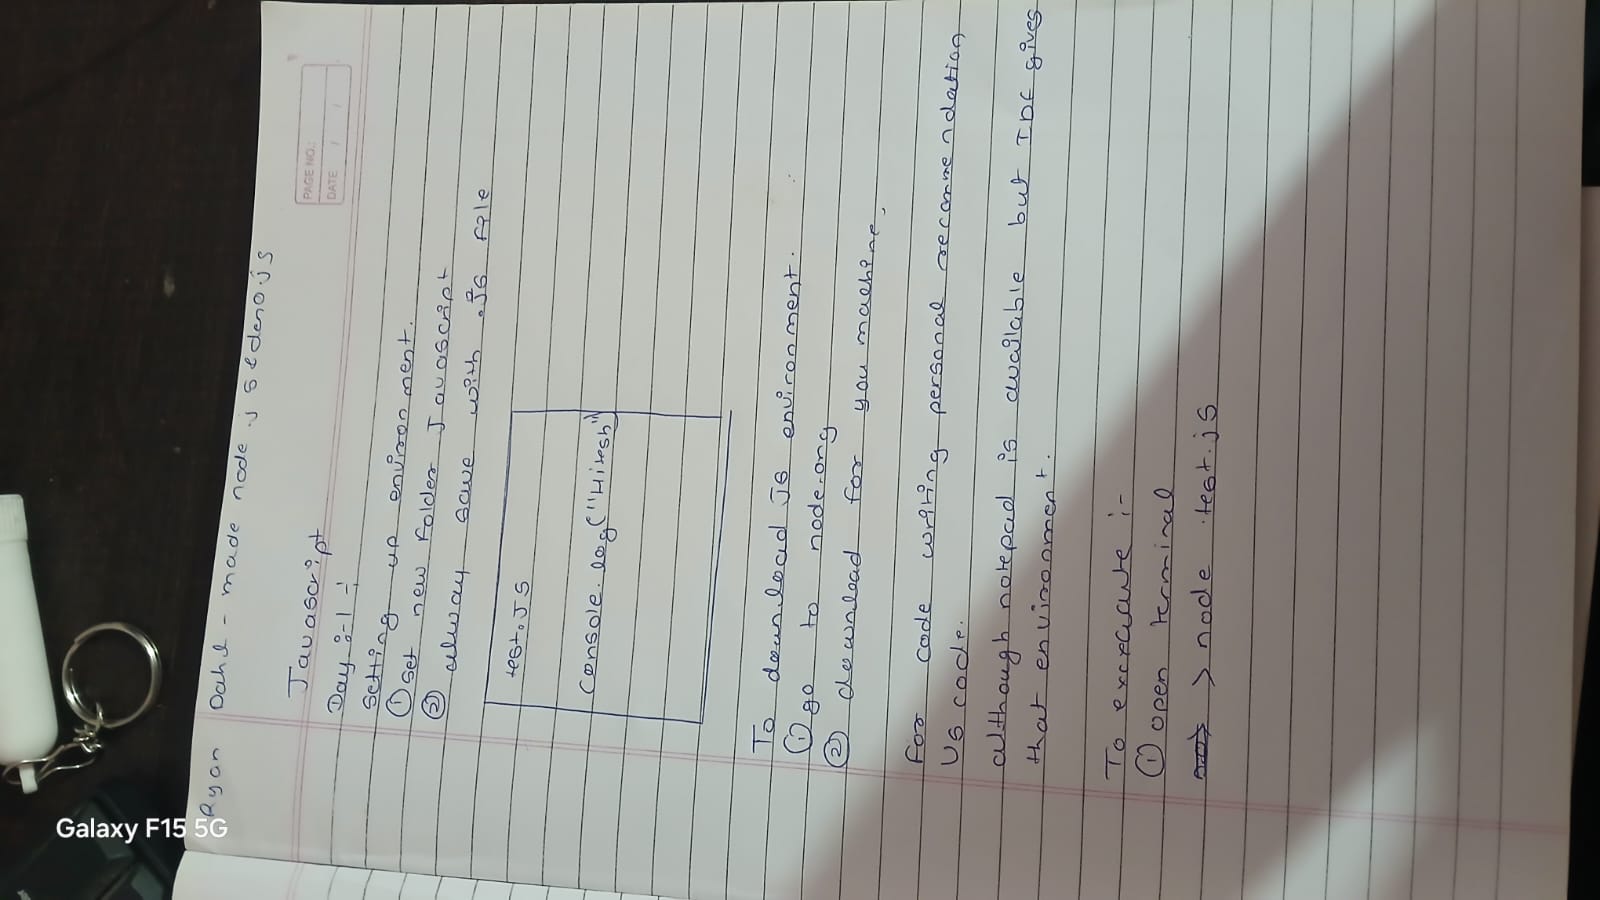 Ryan Dahl - made node js & denojs
PAGE NO.:
DATE / /
Javascript
Day :- 1 -!
Setting up environment.
① set new folder Javascript
② alway save with .js file
test.JS
Console.log("Hitesh")
To download js environment.
① go to node.org
② download for you machine.
For code writing personal recommendation
VS code.
although notepad is available but IDE gives
that environment.
To excecute :-
① open terminal
> node test.js
Galaxy F15 5G